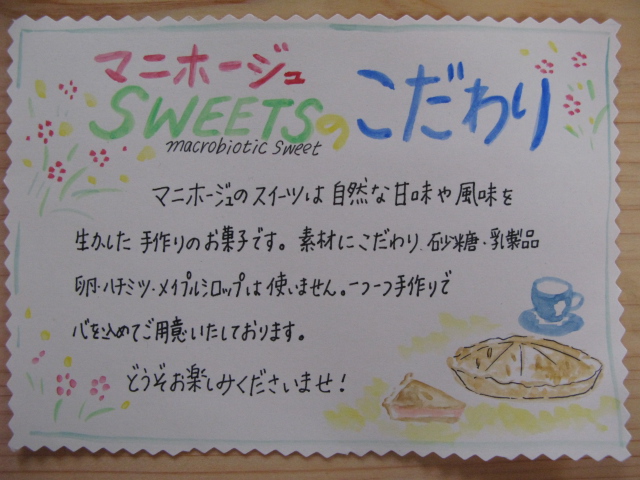 マニホージュ
SWEETSのこだわり
macrobiotic sweet
マニホージュのスイーツは自然な甘味や風味を
生かした手作りのお菓子です。素材にこだわり、砂糖・乳製品
卵・ハチミツ・メイプルシロップは使いません。一つ一つ手作りで
心を込めてご用意いたしております。
どうぞお楽しみくださいませ！